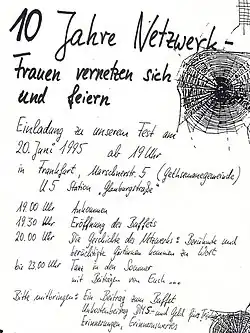 10 Jahre Netzwerk -
Frauen vernetzen sich
und feiern
Einladung zu unserem Fest am
20. Juni 1995 ab 19 Uhr
in Frankfurt, Marschnerstr. 5 (Gethsemanegemeinde)
U5 Station "Glauburgstraße"
19.00 Uhr Ankommen
19.30 Uhr Eröffnung des Buffets
20.00 Uhr Die Geschichte des Netzwerks: Berühmte und
berüchtigte Frauen kommen zu Wort
bis 23.00 Uhr Tanz in den Sommer
mit Beiträgen von Euch ...
Bitte mitbringen: Ein Beitrag zum Buffet
Unkostenbeitrag und Geld fürs
Erinnerungen,